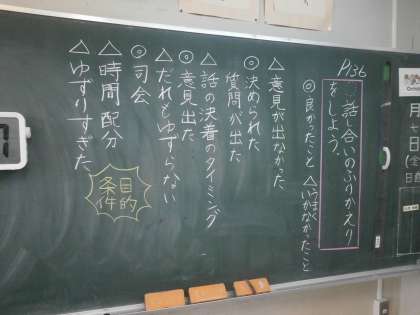 P136
話し合いのふりかえり
をしよう。
◎良かったこと △うまくいかなかったこと
△意見が出なかった
◎決められた
質問が出た
△話の決着のタイミング
◎意見出た
△だれもゆずらない
◎司会
△時周配分
△ゆずりすぎた
目的
条件
月
日